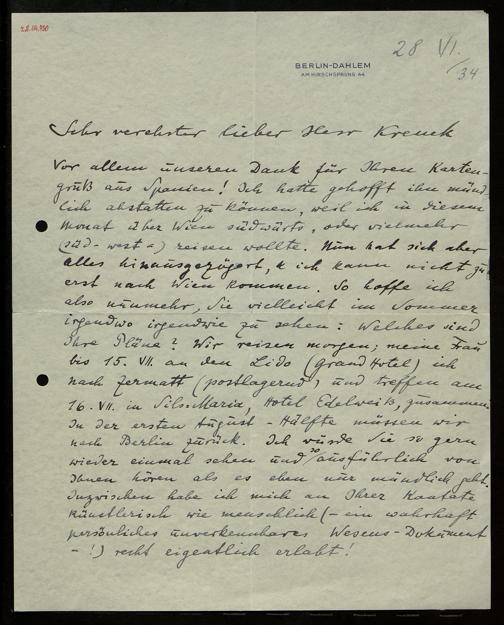 28 VI.
/34
BERLIN-DAHLEM
AM HIRSCHSPRUNG 44
Sehr verehrter lieber Herr Krenek
Vor allem unseren Dank für Ihren Karten-
gruß aus Spanien! Ich hatte gehofft ihn münd-
lich abstatten zu können, weil ich in diesem
Monat über Wien südwärts, oder vielmehr
(süd-west-) reisen wollte. Nun hat sich aber
alles hinausgezögert, & ich kann nicht zu-
erst nach Wien kommen. So hoffe ich
also nunmehr, Sie vielleicht im Sommer
irgendwo irgendwie zu sehen: Welches sind
Ihre Pläne? Wir reisen morgen; meine Frau
bis 15. VII. an den Lido (Grand Hotel) ich
nach Zermatt (postlagernd), und treffen am
16. VII. in Sils-Maria, Hotel Edelweiß, zusammen.
In der ersten August-Hälfte müssen wir
nach Berlin zurück. Ich würde Sie so gern
wieder einmal sehen und so ausführlich von
Ihnen hören als es eben nur mündlich geht.
Inzwischen habe ich mich an Ihrer Kantate
künstlerisch wie menschlich (- ein wahrhaft
persönliches unverkennbares Wesens-Dokument
- !) recht eigentlich erlabt!